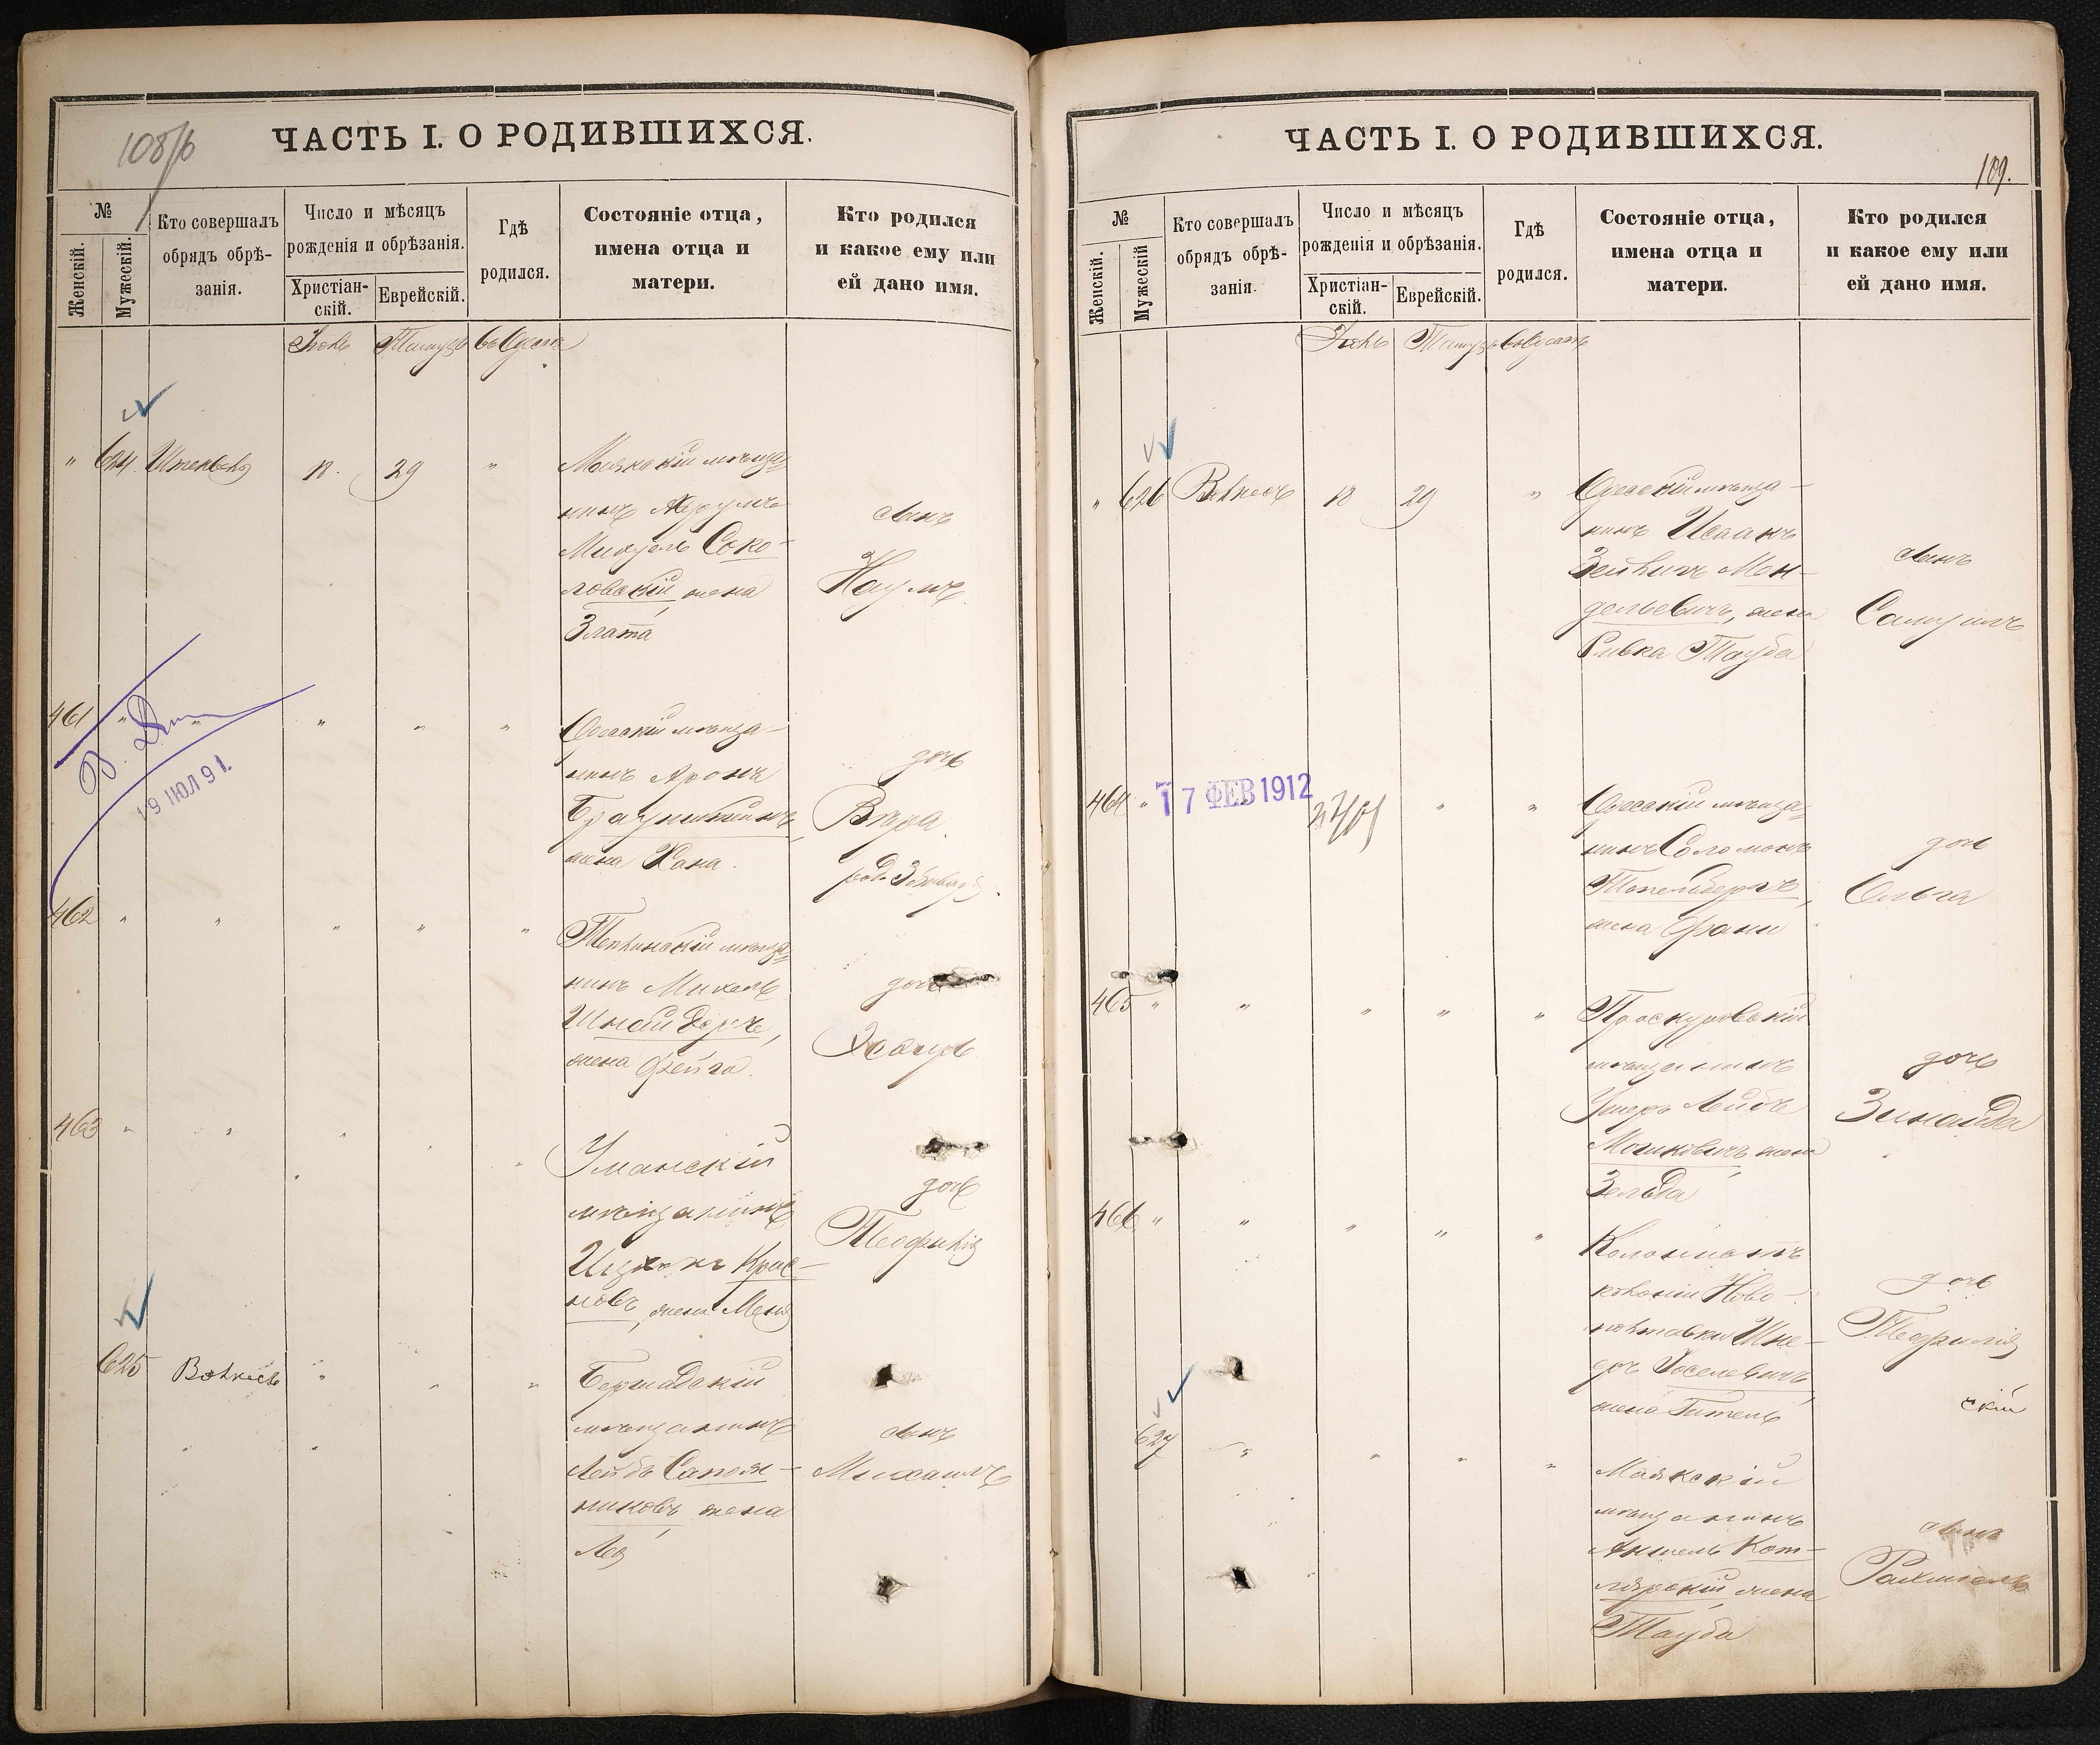 108/б
ЧАСТЬ I. О РОДИВШИХСЯ.
№
Женскій.
Мужескій.
Кто совершалъ
обрядъ обрѣ-
занія.
Число и мѣсяцъ
рожденія и обрѣзанія.
Христіан-
скій.
Еврейскій.
Гдѣ
родился.
Состояніе отца,
имена отца и
матери.
Кто родился
и какое ему или
ей дано имя.
Іюнь Тамузъ въ Одессѣ
" 624. 18. 29 "
Маякскій мѣща-
нинъ
Соко-
ловскій, жена
Злата
сынъ
Наумъ
461 " " " " "
Одесскій мѣща-
нинъ Аронъ
Браунштейнъ,
жена Хана.
дочь
Вѣра
19 ІЮЛ 91.
462 " " " " "
мѣща-
нинъ Михель
Шнайдеръ,
жена Фейга.
дочь
463 " " " " "
Уманскій
мѣщанинъ
Ицхокъ Крас-
новъ, жена Меня
дочь
Теофилія
625 " " "
Бершадскій
мѣщанинъ
Лейбъ Сапож-
никовъ жена
Лея
сынъ
Михаилъ
ЧАСТЬ I. О РОДИВШИХСЯ.
109.
№
Женскій.
Мужескій
Кто совершалъ
обрядъ обрѣ-
занія.
Число и мѣсяцъ
рожденія и обрѣзанія.
Христіан-
скій.
Еврейскій.
Гдѣ
родился.
Состояніе отца,
имена отца и
матери.
Кто родился
и какое ему или
ей дано имя.
Іюнь Тамузъ въ Одессѣ
" 626 18 29 "
Одесскій мѣща-
нинъ Исаакъ
Мен-
дельевичъ, жена
Ривка Тауба
сынъ
Самуилъ
464 " " " "
17 ФЕВ 1912
Одесскій мѣща-
нинъ Соломонъ
Топельбергъ,
жена Фани
дочь
Ольга
465 " " " " "
Проскуровскій
мѣщанинъ
Лейбъ
Мошковичъ жена
Зельда
дочь
Зинаида
466 " " " " "
Колонистъ
колоніи Ново-
полтавки Шне-
еръ Іоселевичъ,
жена Гитель
дочь
Теофилія
скій
627 " " " "
Маякскій
мѣщанинъ
Аншель Кот-
лярскій жена
Тауба
сынъ
Рахмиель